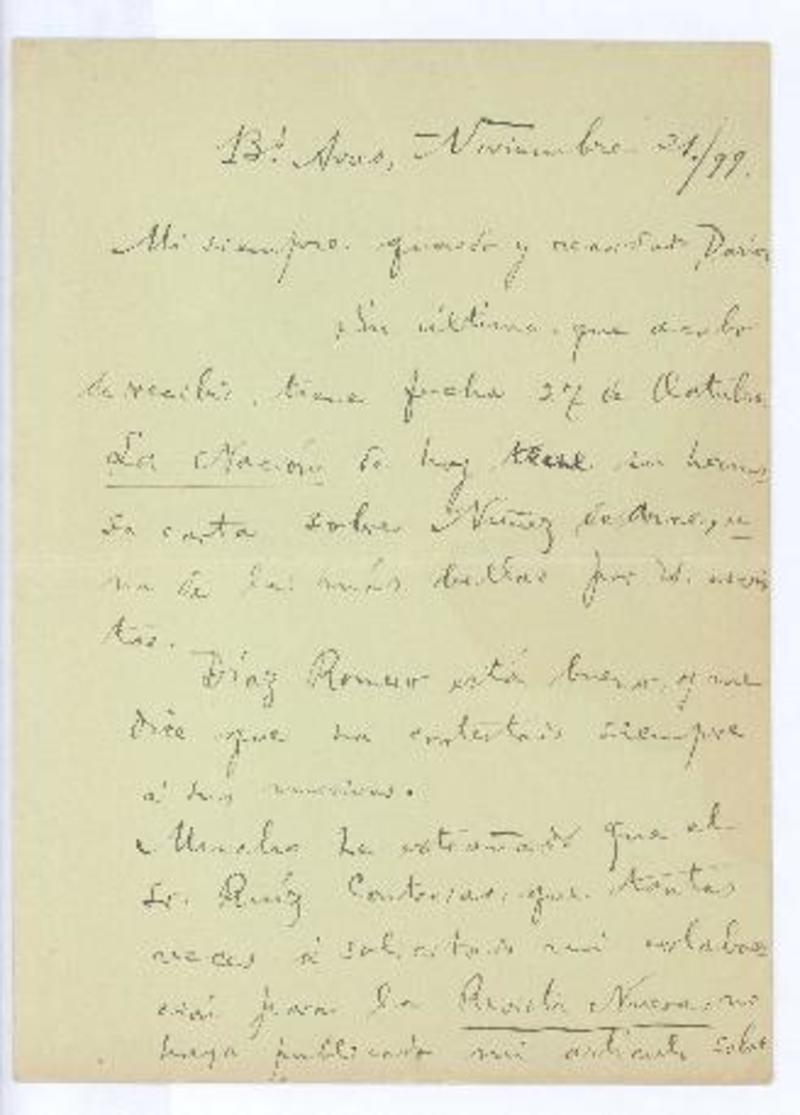 Bs Aires, Noviembre 21/99.
Mi siempre querido y recordado Darío
Su última, que acabo
de recibir, tiene fecha 27 de Octubre.
La Nación de hoy tiene su hermo
sa carta sobre Núñez de Arce, u
na de las más bellas por Vd. escri
tas.
Díaz Romero está bueno, y me
dice que ha contestado siempre
á sus misivas.
Mucho he extrañado que el
Sr. Ruíz Contreras, que tantas
veces á solicitado mi colabora
ción para la Revista Nueva, no
haya publicado mi artículo sobre